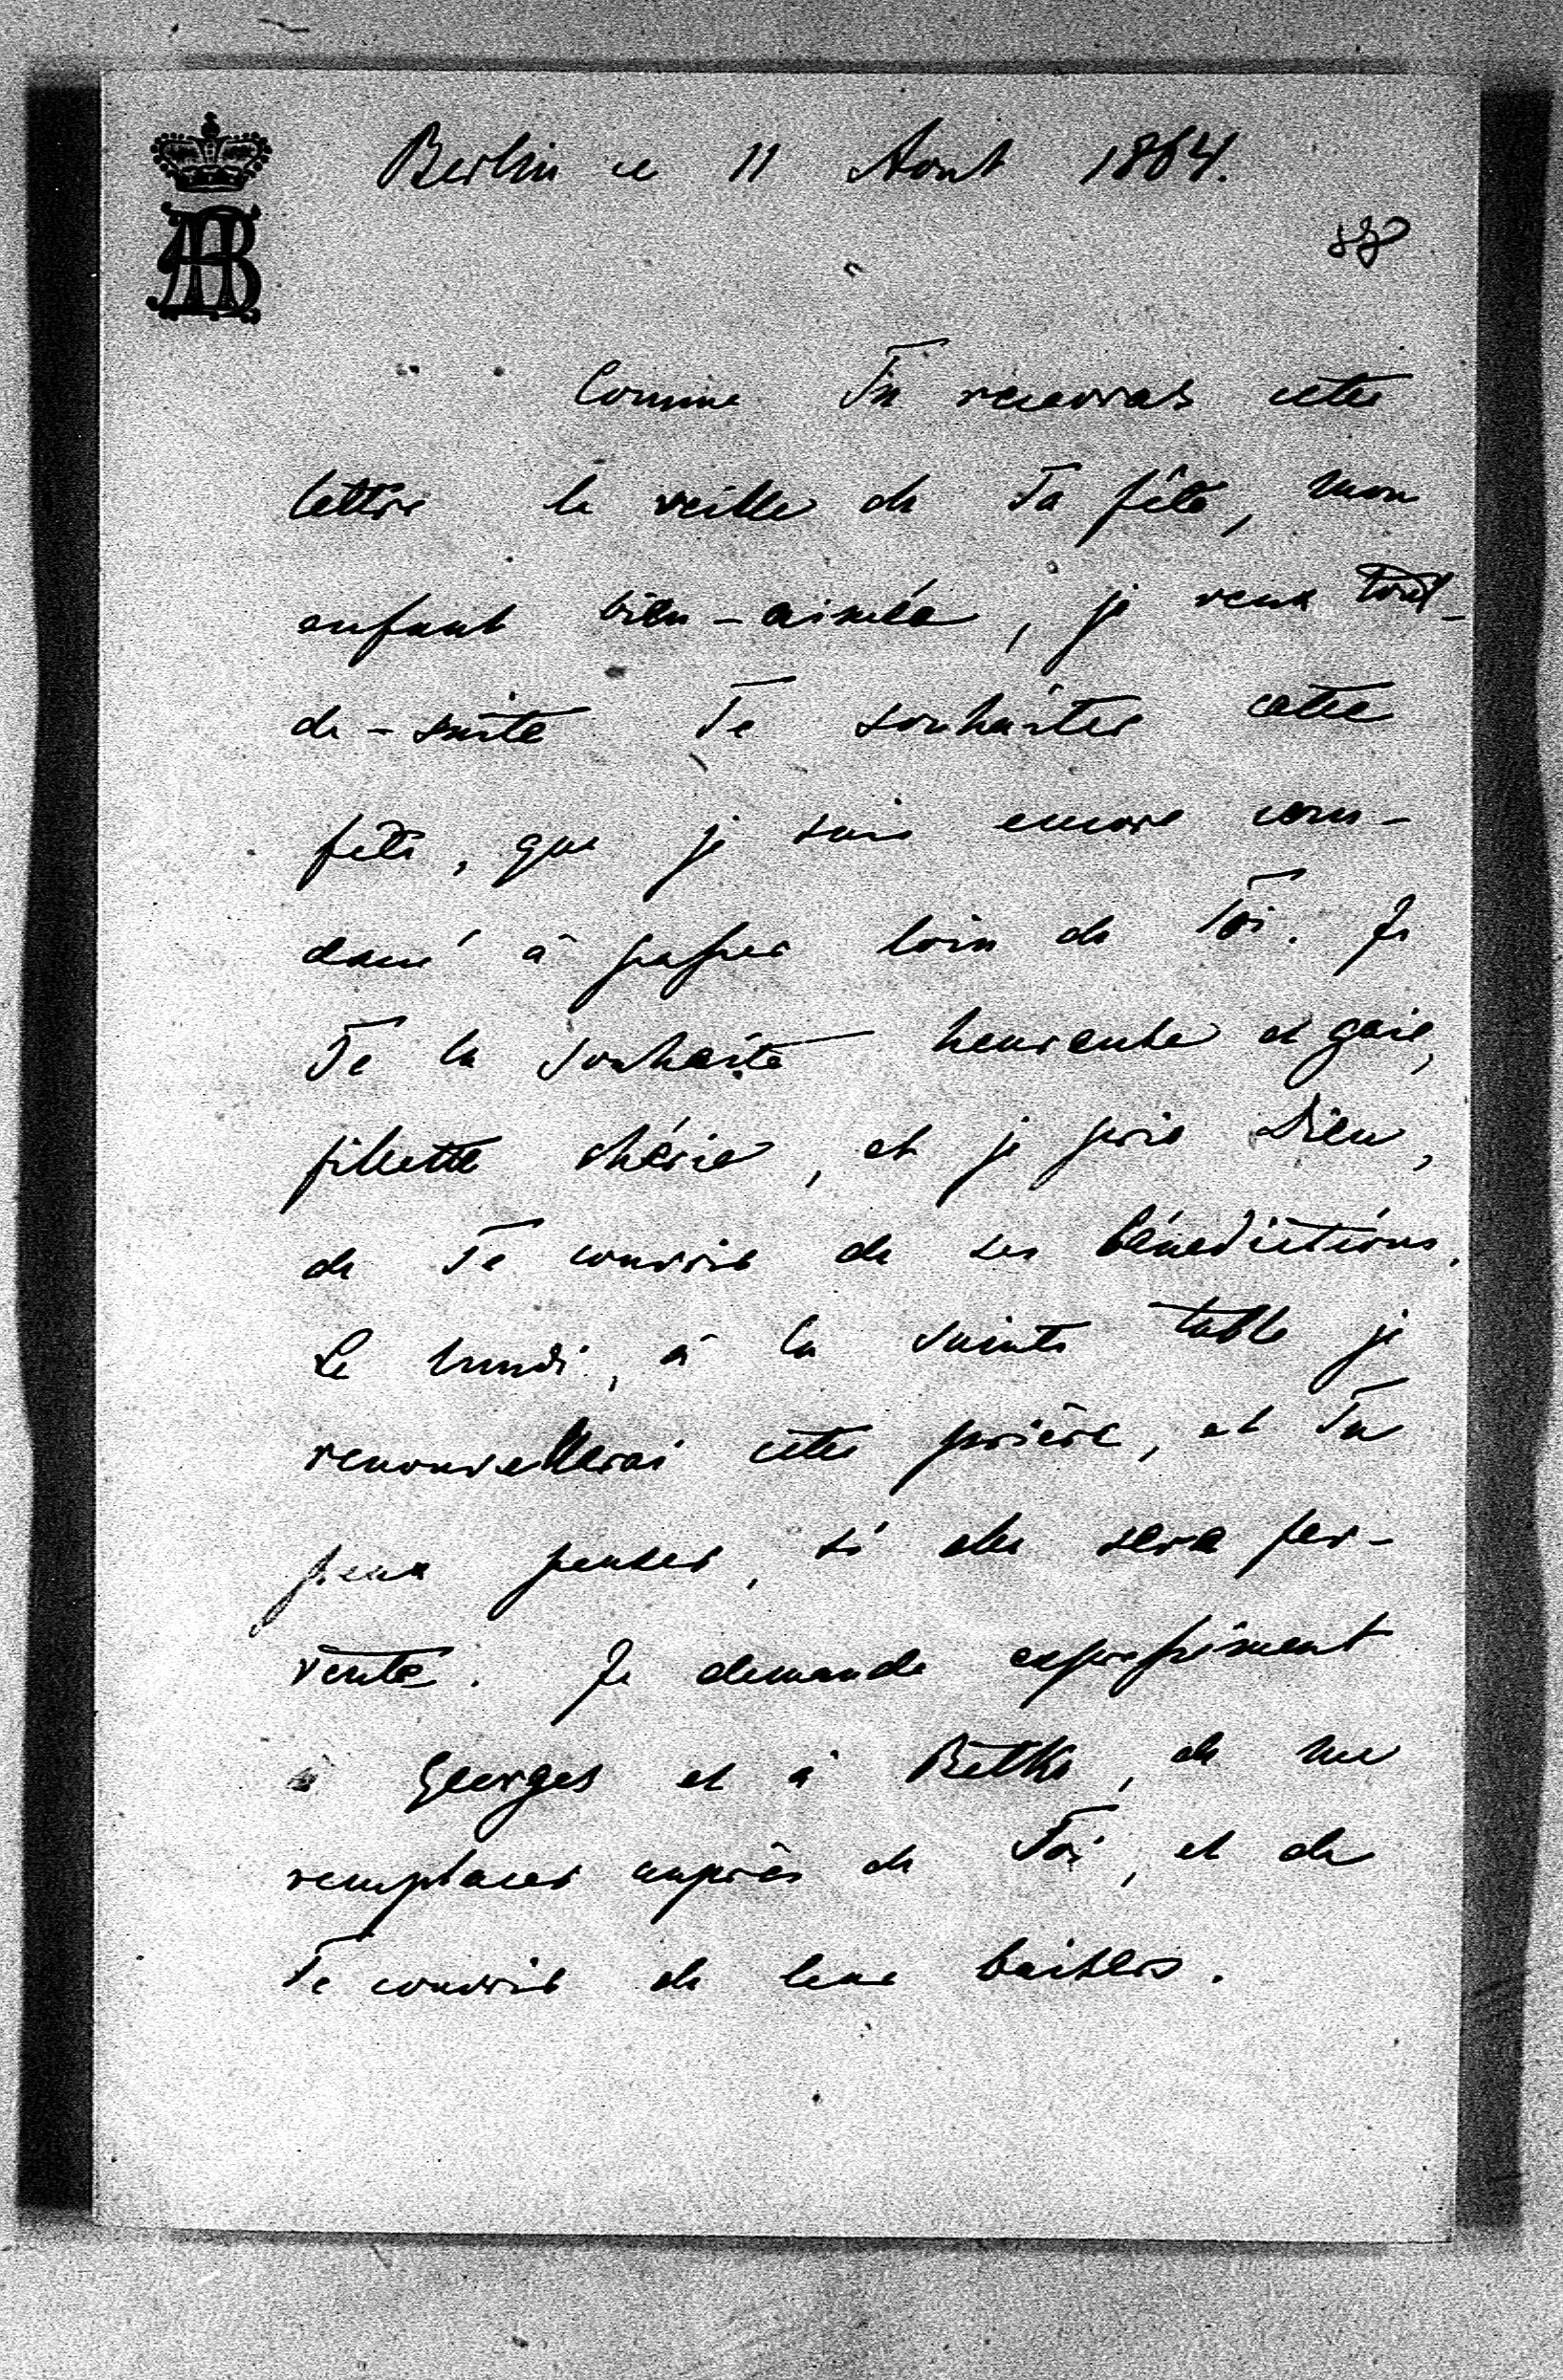 Berlin ce 11 Aout 1864.
Comme Tu recevras cette
lettre la veille de Ta fête, mon
enfant bien-aimée, je veux tout-
de-suite Te souhaiter cette
fête, que je suis encore con-
damé à passer loin de Toi. Je
Te la souhaite heureuse et gaie,
fillette chérie, et je prie Dieu,
de Te couvrir de ses bénédictions.
Le lundi, à la sainte table je
renouvellerai cette prière, et Tu
peux penser, si elle sera fer-
vente. Je demande expressément
à Georges et à Bethe, de me
remplacer auprès de Toi, et de
Te couvrir de leur baisers.